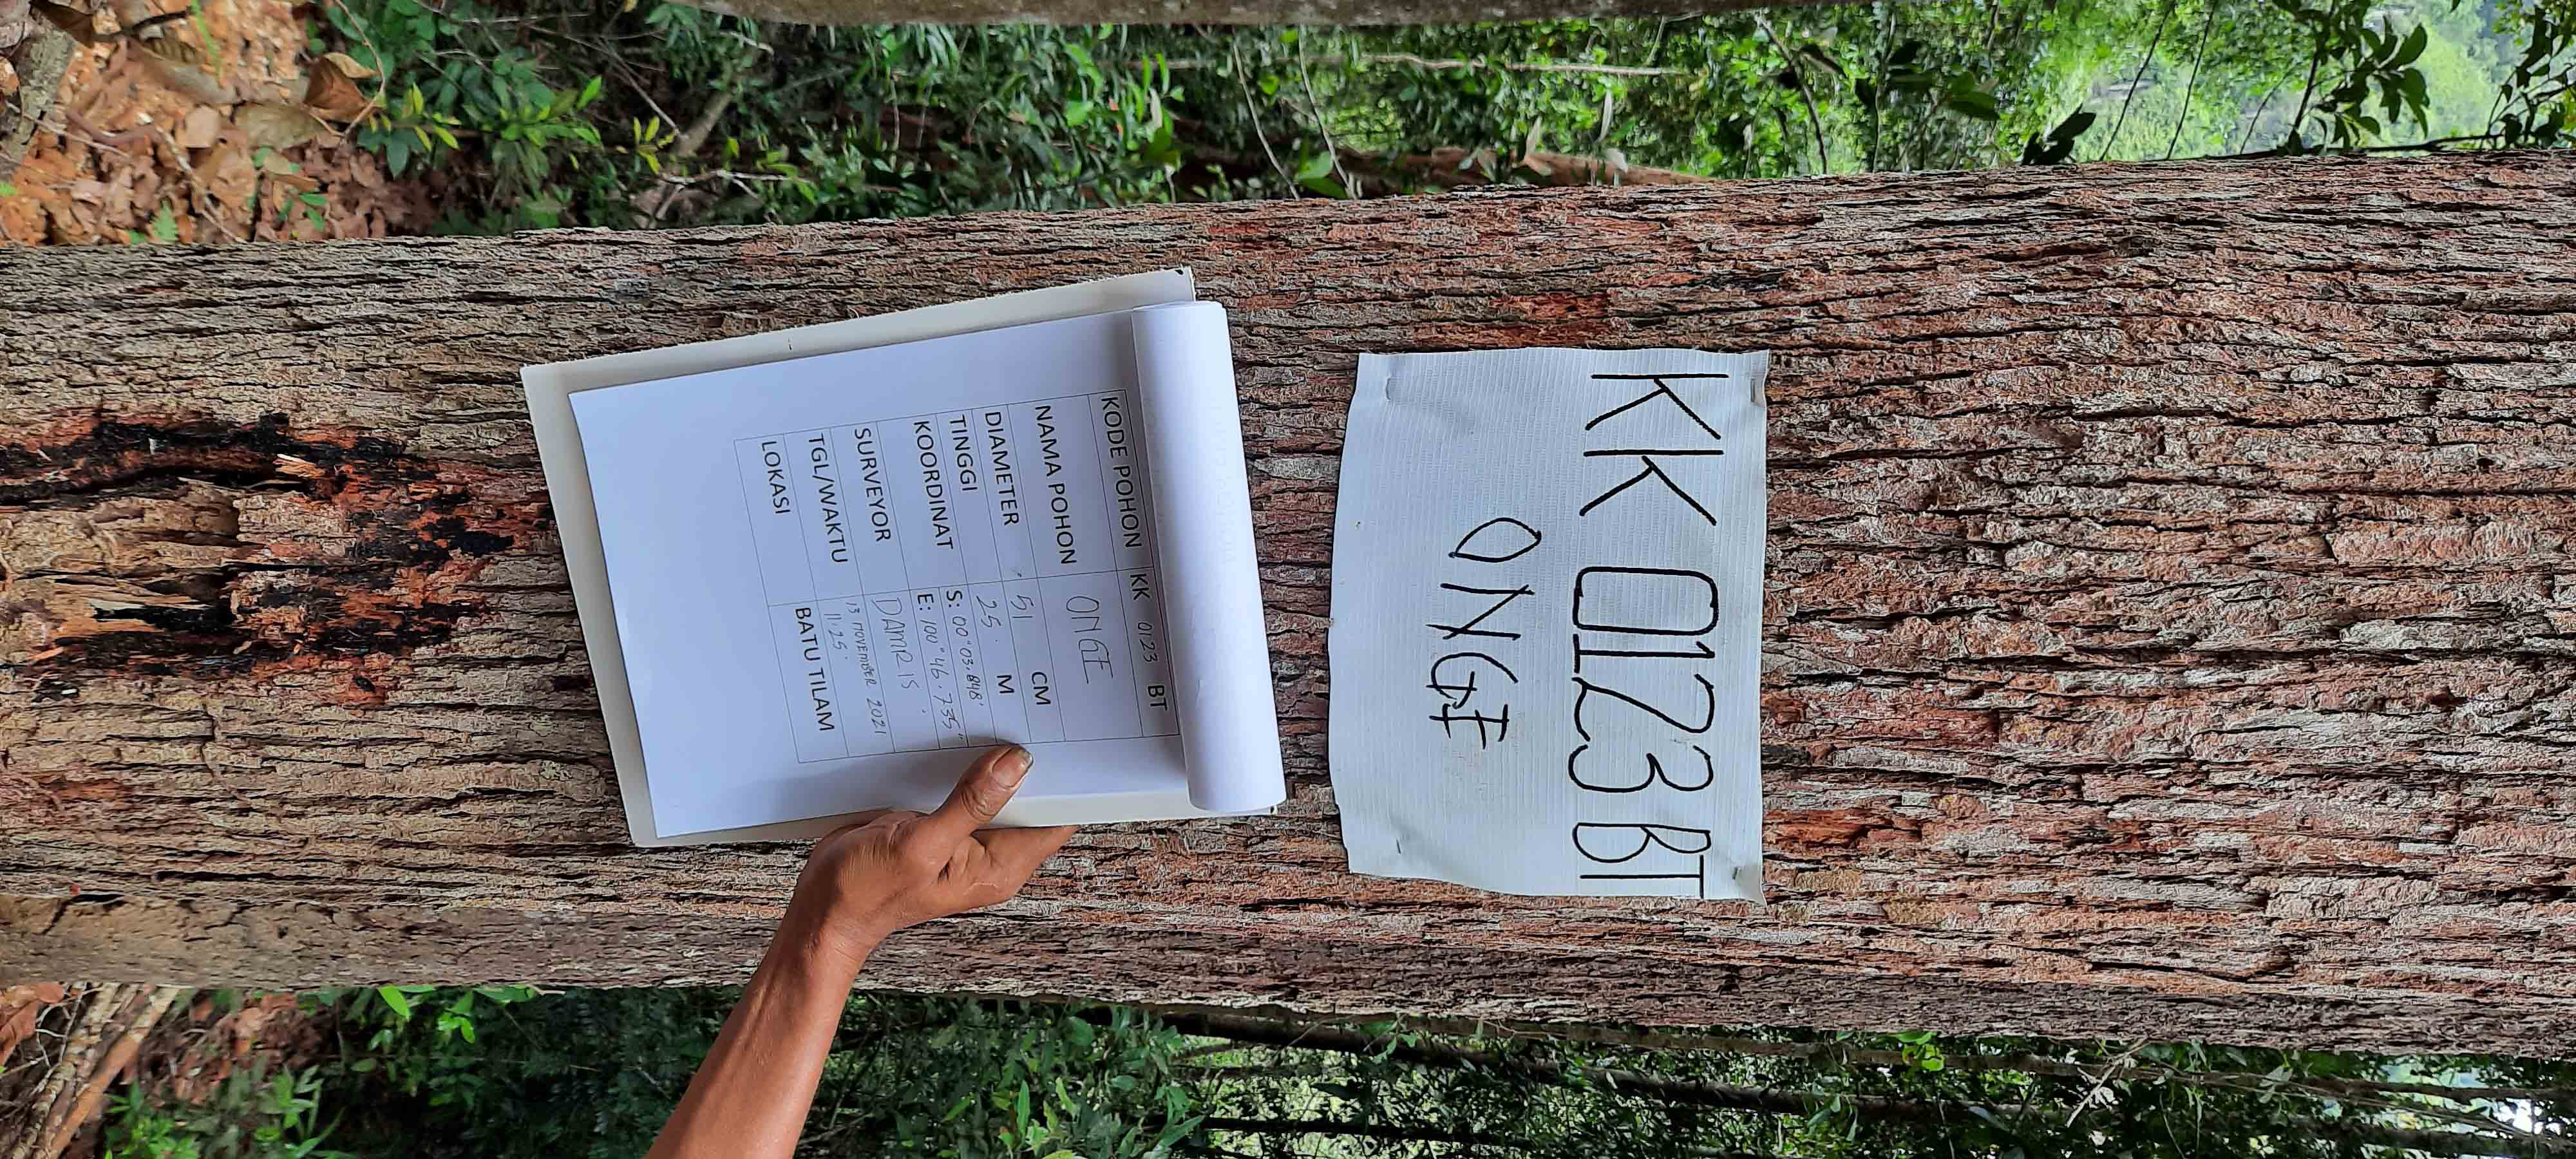 KK 0123 BT
ONGE
KODE POHON KK 0123 BT
NAMA POHON ONGE
DIAMETER 51 CM
TINGGI 25. M
KOORDINAT S: 00° 03.848'
E: 100° 46.735"
SURVEYOR DAMRIS.
TGL/WAKTU 13 NOVEMBER 2021
11.25.
LOKASI BATU TILAM